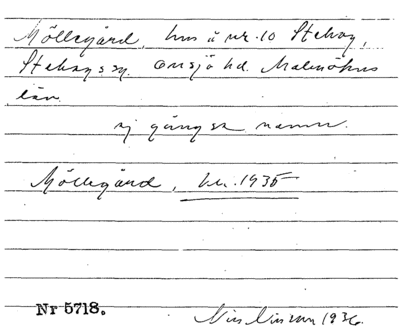 Möllegård, hus å nr. 10 Stehag,
Stehags sn. Onsjö hd. Malmöhus
län.
ej gängse namn.
Möllegård, bli. 1935
Nr 5718.
Nils Nilsson 1936.